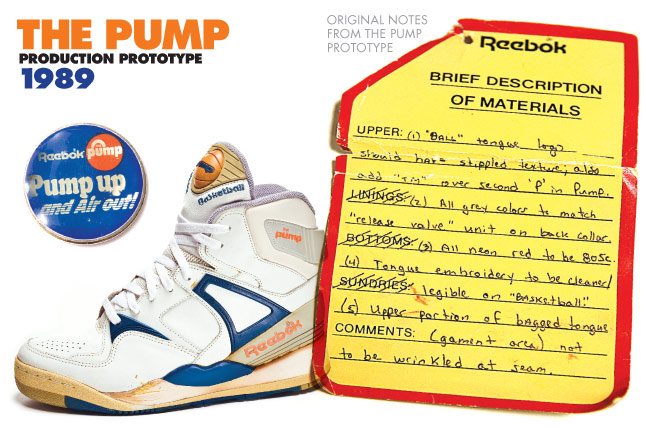 THE PUMP
PRODUCTION PROTOTYPE
1989
ORIGINAL NOTES
FROM THE PUMP
PROTOTYPE
Reebok
BRIEF DESCRIPTION
OF MATERIALS
UPPER: (1) "BALL" tongue logo
should have stippled texture; also
add "TM" over second 'P' in Pump.
LININGS: (2) All grey colors to match
"release valve" unit on back collar.
BOTTOMS: (3) All neon red to be 805c.
(4) Tongue embroidery to be cleaner/
SUNDRIES: legible on "BASKetball"
(5) Upper portion of bagged tongue
COMMENTS: (gament area) not
to be wrinkled at seam.
Reebok pump
Pump up
and Air out!
Basketball
the pump
Reebok